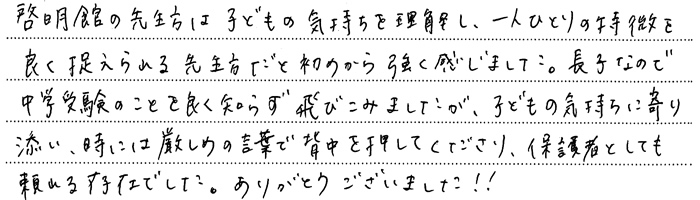 啓明館の先生方は子どもの気持ちを理解し、一人ひとりの特徴を
良く捉えられる先生方だと初めから強く感じました。長子なので
中学受験のことを良く知らず飛びこみましたが、子どもの気持ちに寄り
添い、時には厳しめの言葉で背中を押してくださり、保護者としても
頼れる存在でした。ありがとうございました!!